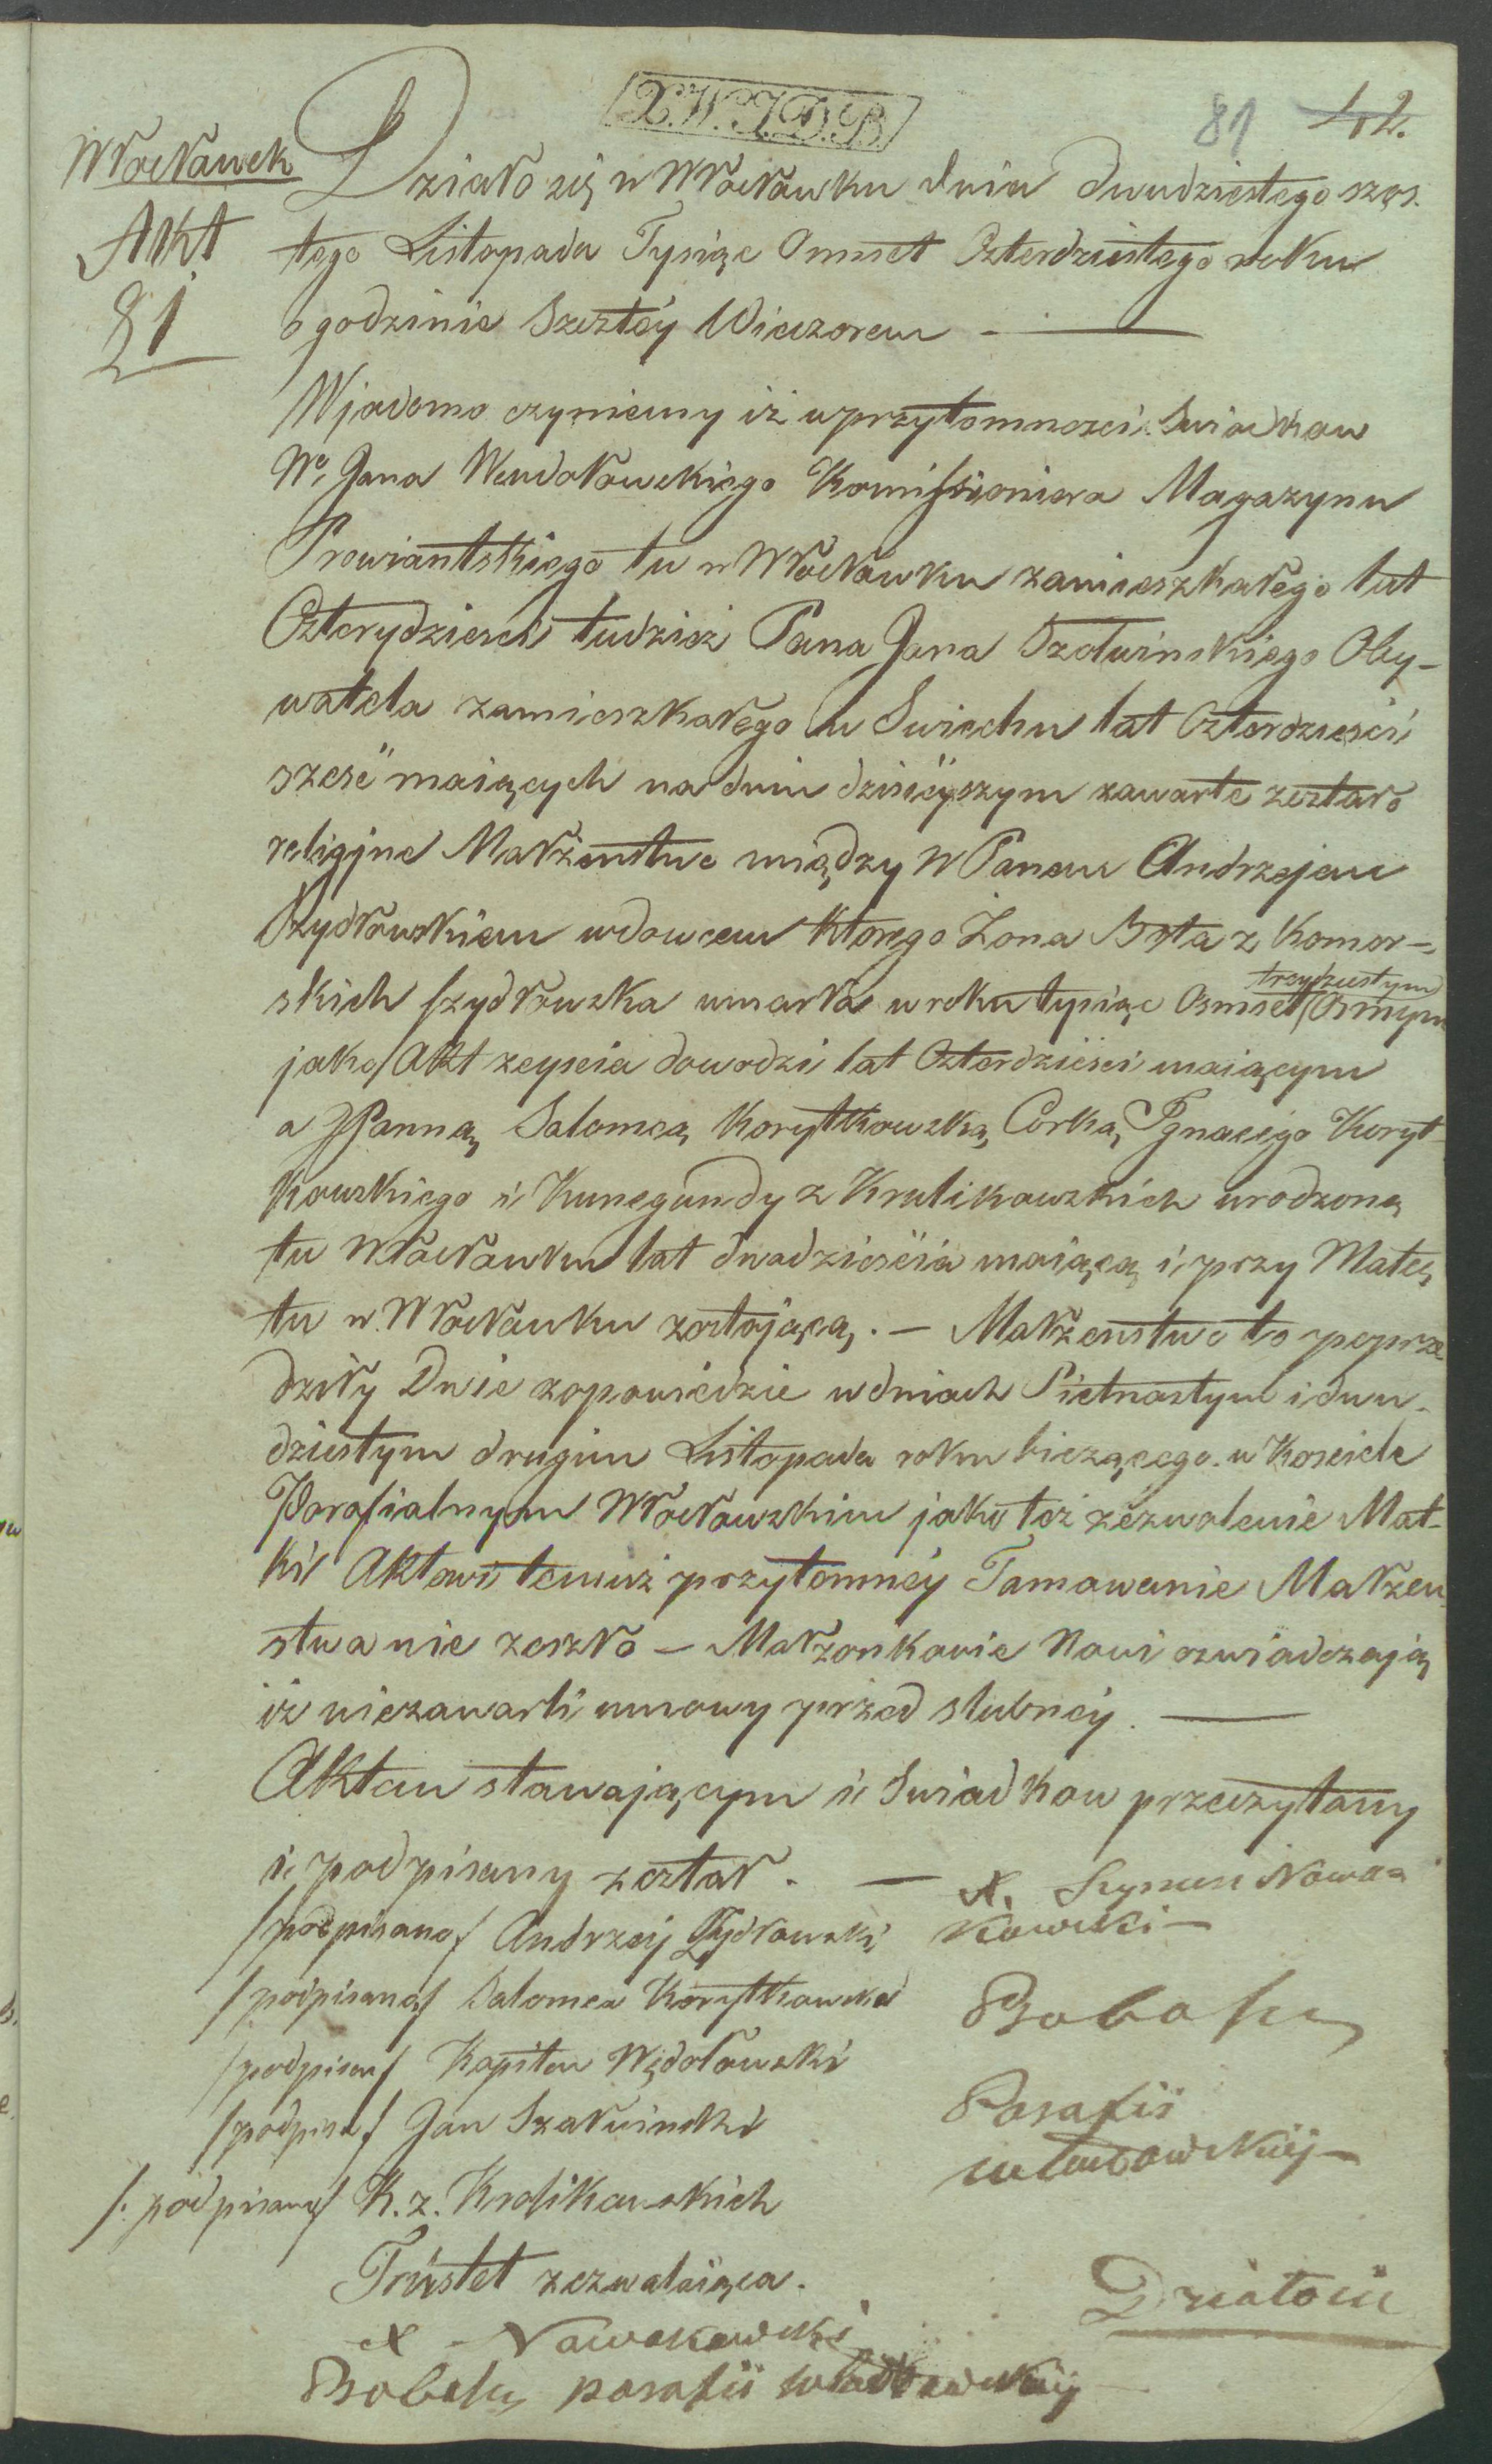 X.W.J.D.B
81 42.
Włocławek
Akt
81
Działo się w Włocławku dnia dwudziestego szos.
tego Listopada Tysiąc Osmset Czterdziestego roku
o godzinie Szesztey Wieczorem –
Wjadomo czyniemy iż w przytomnosci Swiadkow
Wo Jana Wendołowskiego Komissioniera Magazynu
Prowiantskiego tu w Włocławku zamieszkałego lat
Czterydziesci tudziez Pana Jana Szołwinskiego Oby-
watela zamieszkałego w Swiechu lat Czterdziesci
szesć maiących na dniu dzisieyszym zawarte zostało
religijne Małżenstwo między W Panem Andrzejem
Szydłowskiem wdowcem ktorego Zona Bęta z Komor-
skich szydłowska umarła w roku tysiąc Osmset trzydziestym Osmym
jako Akt zeyscia dowodzi lat Czterdziesci maiącym
a JPanną Salomeą Korytkowską Corką Ignacego Koryt
kowskiego i Kunegundy z Krulikowskich urodzoną
tu Włocławku lat dwadziescia maiącą i przy Matce
tu w Włocławku zostającą. – Małzenstwo to poprze
dziły Dwie zapowiedzie w dniach Pietnastym i dwu-
dziestym drugim Listopada roku bieżącego w Kosciele
Parafialnym Włocławskim jako też zezwolenie Mat-
ki Aktowi temuz przytomney Tamowanie Małzen
stwa nie zeszło – Małzonkowie Nowi oswiadczają
iż niezawarli umowy przed slubney. –
Akten stawającym i Swiadkow przeczytany
i podpisany został. –
X. Szymon Nowa=
kowski –
/podpisano/ Andrzej Szydłowski
/podpisano/ Salomea Korytkowska
/podpisan/ Kapitan Wędołowski
/podpisa/ Jan Szałwinski
/: podpisano/ K. z. Krolikowskich
Trustet zezwalaiąca.
Parafii
Działoiu
X – Nowakowski
parafii